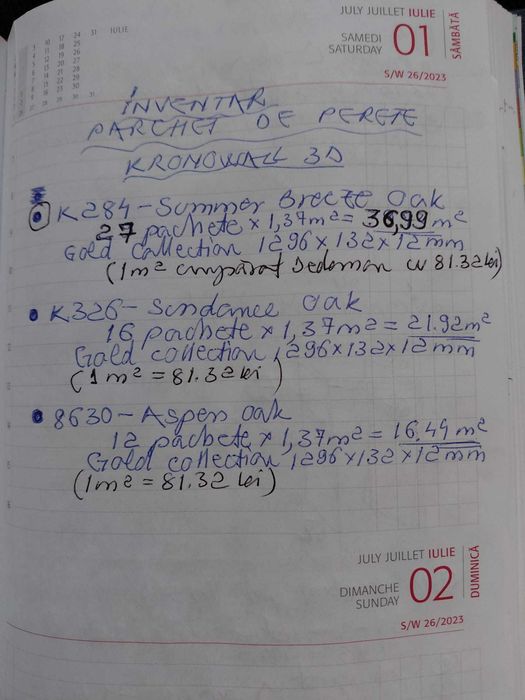 3 10 17 24 31 IULIE
JULY JUILLET IULIE
SAMEDI
SATURDAY
01
SÂMBĂTĂ
S/W 26/2023
INVENTAR
PARCHET DE PERETE
KRONOWALL 3D
K284 - Summer Breeze Oak
27 pachete x 1,37m² = 36,99 m²
Gold Collection 1296 x 132 x 12 mm
(1m² cumpărat Dedeman cu 81.32 lei)
K326 - Sundance Oak
16 pachete x 1,37m² = 21.92 m²
Gold collection 1296 x 132 x 12 mm
(1m² = 81.32 lei)
8630 - Aspen Oak
12 pachete x 1,37m² = 16.44 m²
Gold collection 1296 x 132 x 12 mm
(1m² = 81.32 lei)
JULY JUILLET IULIE
DIMANCHE
SUNDAY
02
DUMINICĂ
S/W 26/2023